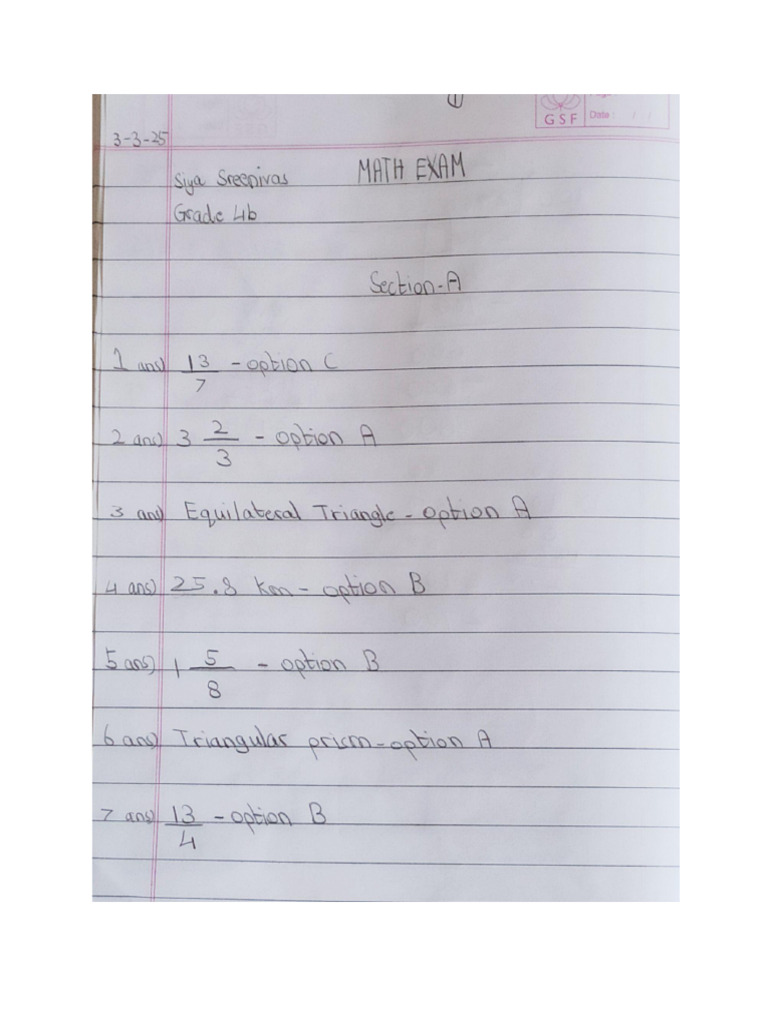 ①
GSF
Date : / /
3-3-25
MATH EXAM
Siya Sreenivas
Grade 4b
Section-A
1 ans) 13/7 - option C
2 ans) 3 2/3 - option A
3 ans) Equilateral Triangle - option A
4 ans) 25.8 km - option B
5 ans) 1 5/8 - option B
6 ans) Triangular prism - option A
7 ans) 13/4 - option B